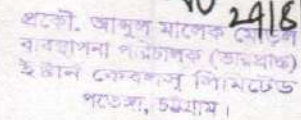 24/8
প্রকৌ. আব্দুল মালেক মোড়ল
ব্যবস্থাপনা পরিচালক (ভারপ্রাপ্ত)
ইষ্টার্ন কেবলস্ লিমিটেড
পতেঙ্গা, চট্টগ্রাম।